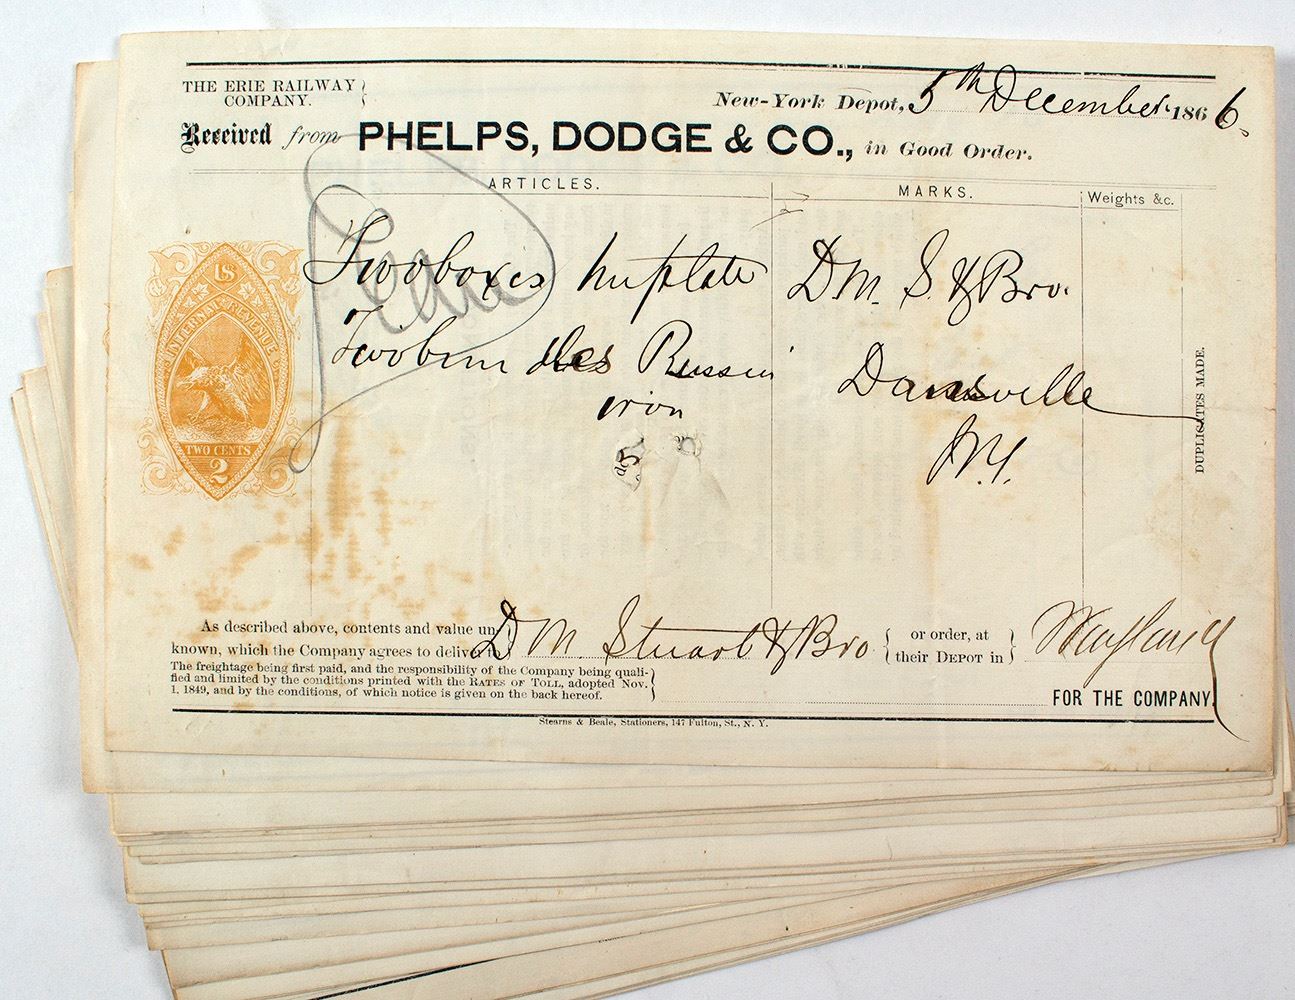 THE ERIE RAILWAY
COMPANY.
New-York Depot, 5th December 1866.
Received from PHELPS, DODGE & CO., in Good Order.
ARTICLES. MARKS. Weights &c.
Two boxes tinplate D.M. S. & Bro.
Two bundles Russia Dansville
iron N.Y.
US
INTERNAL REVENUE
TWO CENTS
2
DUPLICATES MADE.
As described above, contents and value un-
known, which the Company agrees to deliver to D M. Stuart & Bro { or order, at
their DEPOT in }
The freightage being first paid, and the responsibility of the Company being quali-
fied and limited by the conditions printed with the RATES OF TOLL, adopted Nov.
1, 1849, and by the conditions, of which notice is given on the back hereof.
FOR THE COMPANY.
Stearns & Beale, Stationers, 147 Fulton, St., N. Y.